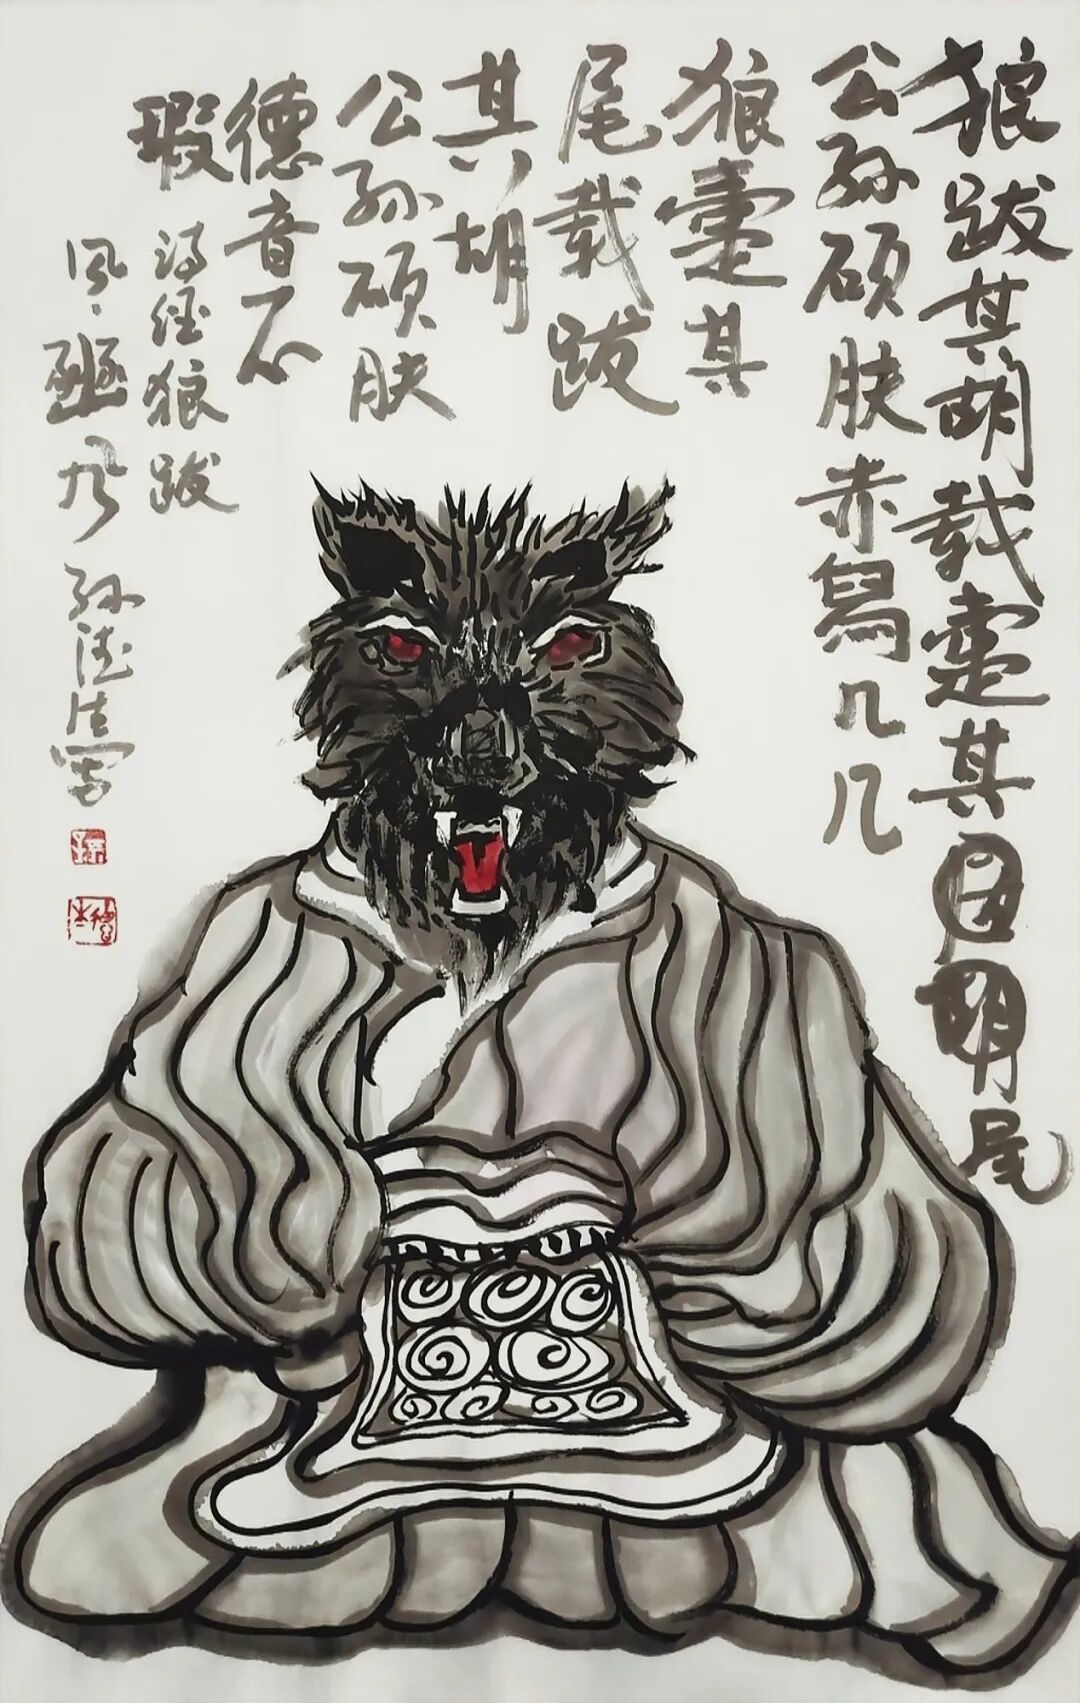 狼跋其胡载疐其尾
公孙硕肤赤舄几几
狼疐其
尾载跋
其胡
公孙硕肤
德音不
瑕
诗经狼跋
风·豳风 孙